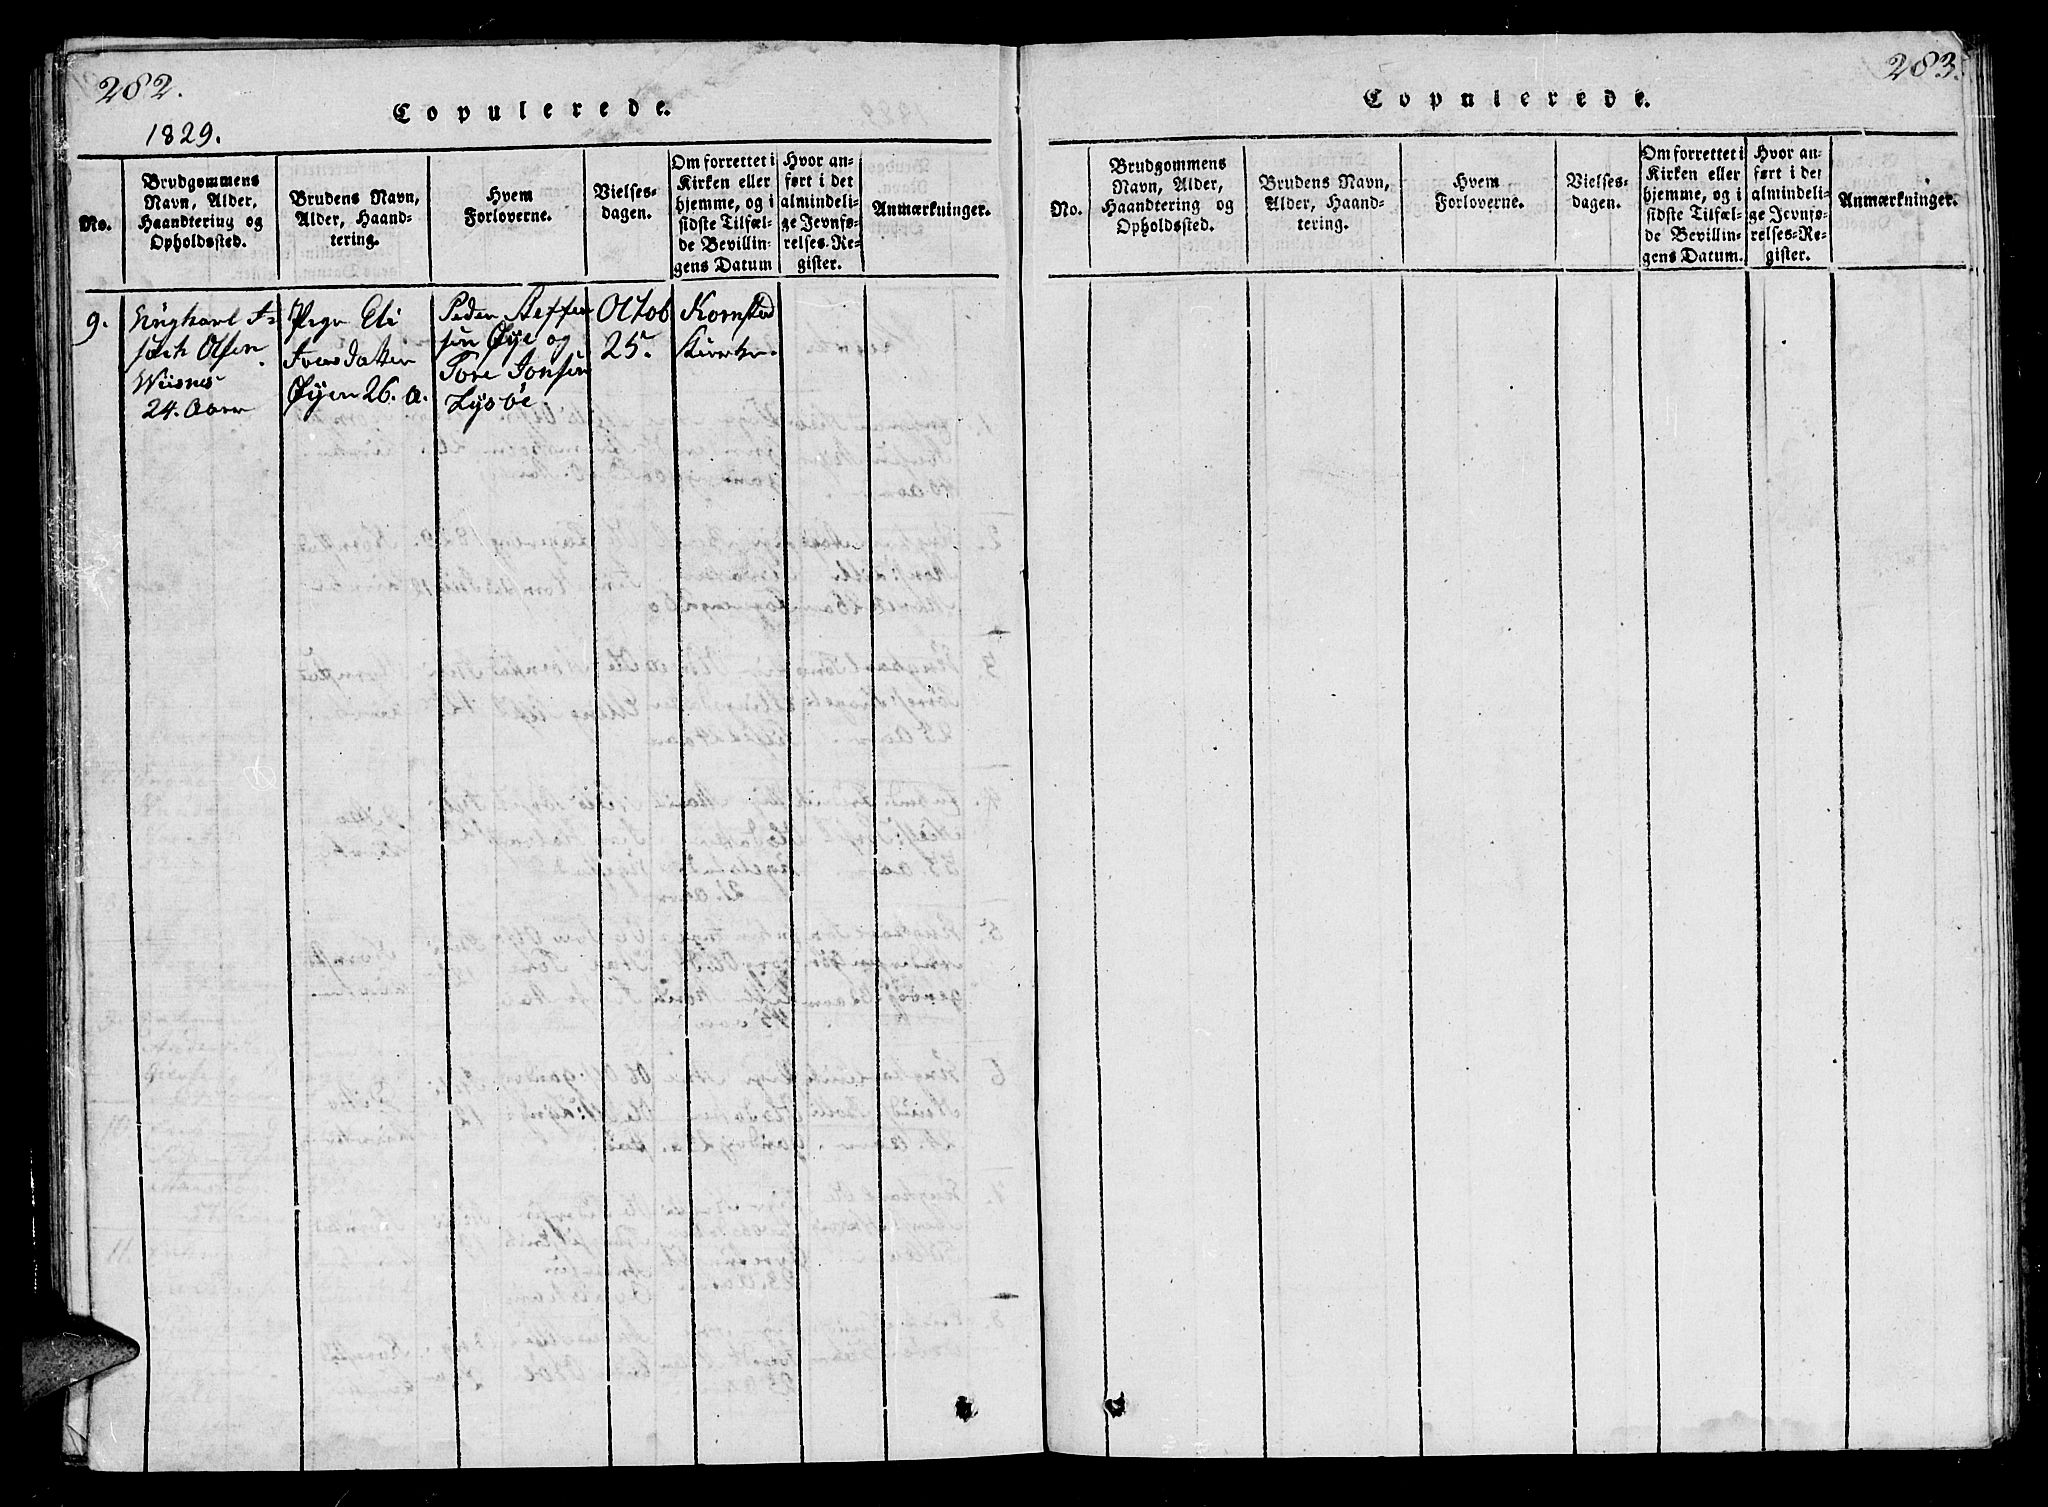 282.
Copulerede.
1829.
No.
Brudgommens
Navn, Alder,
Haandtering og
Opholdssted.
Brudens Navn,
Alder, Haand-
tering.
Hvem
Forloverne.
Vielses-
dagen.
Om forrettet i
Kirken eller
hjemme, og i
sidste Tilfæl-
de Bevillin-
gens Datum
Hvor an-
ført i det
almindeli-
ge Jevnfø-
relses-Re-
gister.
Anmærkninger.
9.
Ungkarl
Olsen
Wiisnes
24. Aar
Pige Eli
Iversdatter
Øyen 26. a.
Peder Steffen
sen Øye og
Tore Jonsen
Lysøe
Octob
25.
Kornstad
Kirke.
283.
Copulerede.
No.
Brudgommens
Navn, Alder,
Haandtering og
Opholdssted.
Brudens Navn,
Alder, Haand-
tering.
Hvem
Forloverne.
Vielses-
dagen.
Om forrettet i
Kirken eller
hjemme, og i
sidste Tilfæl-
de Bevillin-
gens Datum.
Hvor an-
ført i det
almindeli-
ge Jevnfø-
relses-Re-
gister.
Anmærkninger.